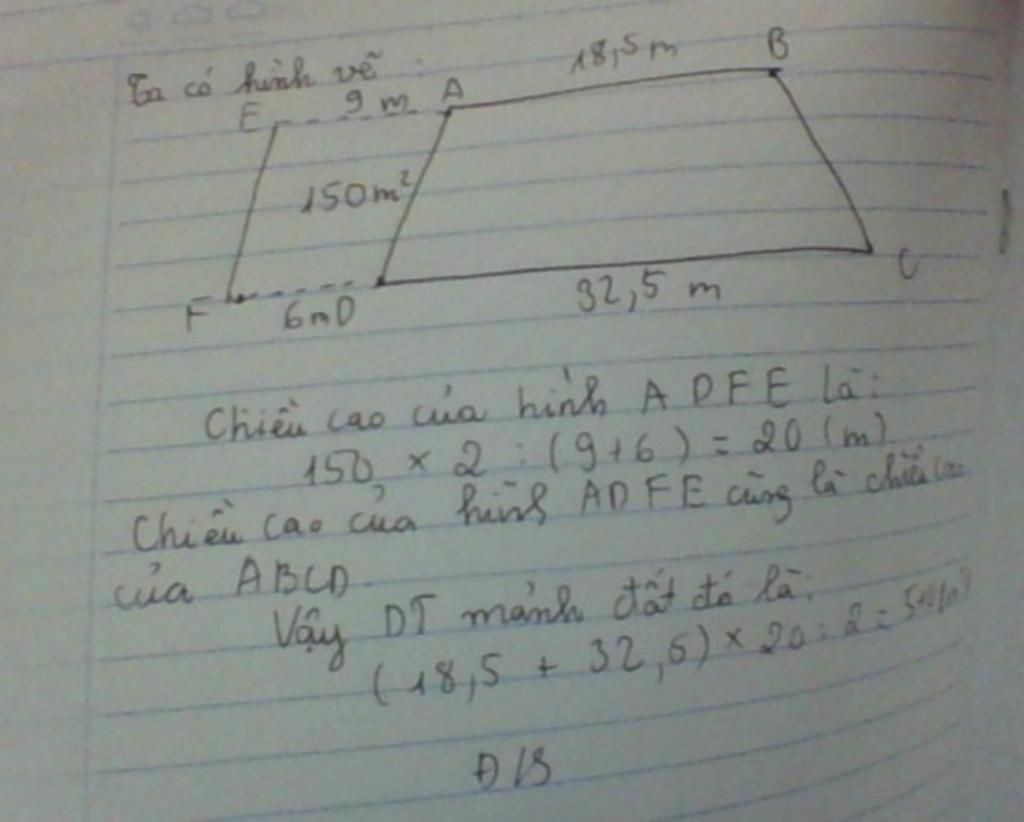 Ta có hình vẽ :
18,5 m
B
9 m
A
E
150m²
C
F
6m
D
32,5 m
Chiều cao của hình ADFE là:
150 × 2 : (9+6) = 20 (m)
Chiều cao của hình ADFE cũng là chiều cao
của ABCD
Vậy DT mảnh đất đó là:
(18,5 + 32,5) × 20 : 2 =
Đ/S